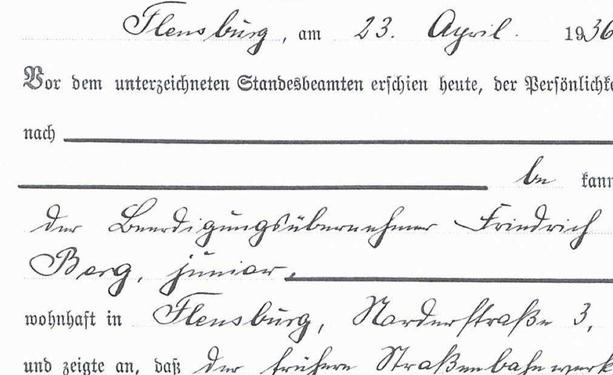 Flensburg, am 23. April. 1936
Vor dem unterzeichneten Standesbeamten erschien heute, der Persönlichke
nach
be kann
der Beerdigungsübernehmer Friedrich
Berg, junior,
wohnhaft in Flensburg, Norderstraße 3,
und zeigte an, daß der frühere Straßenbahnwerk